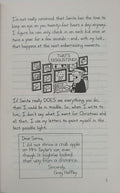 I'm not really convinced that Santa has the time to
keep an eye on you twenty-four hours a day anyway.
I figure he can only check in on each kid once or
twice a year for a few seconds - and, with my luck,
that happens at the most embarrassing moments.
THAT'S
DISGUSTING!
If Santa really DOES see everything you do,
then it could be a problem. So when I write to
him, I don't say what I want for Christmas and
all that. I use my letters to paint myself in the
best possible light.
Dear Santa,
I did not throw a crab apple
at Mrs Taylor's car, even
though it might've looked
that way from a distance.
Sincerely,
Greg Heffley